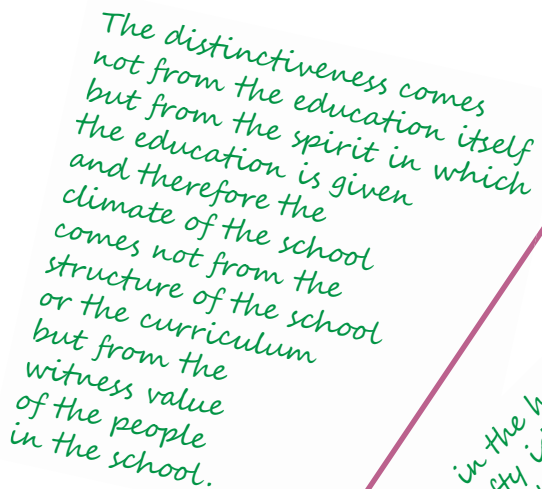 The distinctiveness comes
not from the education itself
but from the spirit in which
the education is given
and therefore the
climate of the school
comes not from the
structure of the school
or the curriculum
but from the
witness value
of the people
in the school.
in the